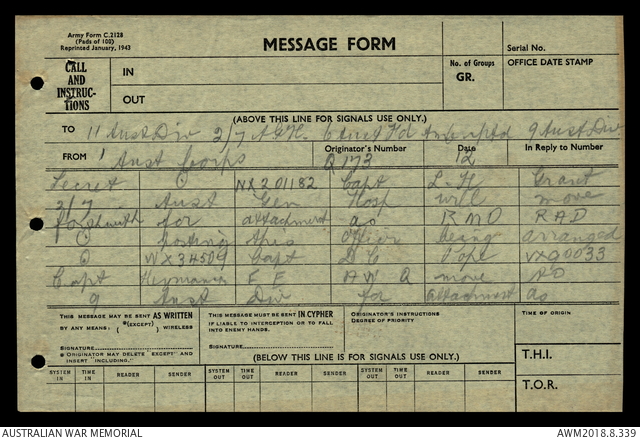 Army Form C.2128
(Pads of 100)
Reprinted January, 1943
MESSAGE FORM
Serial No.
CALL AND INSTRUC-TIONS
IN
OUT
No. of Groups
GR.
OFFICE DATE STAMP
(ABOVE THIS LINE FOR SIGNALS USE ONLY.)
TO 11 Aust Div 2/7 A.G.H. 6 Aust Fd 9 Aust Div
FROM 1 Aust Corps
Originator's Number
Q173
Date
12
In Reply to Number
Secret O NX201182 Capt L.H Grant
2/7 Aust Gen Hosp will move
forthwith for attachment as RMO RAD
O posting this Officer being arranged
O WX34509 Capt D C Pope VX90033
Capt F F A W Q move HQ
9 Aust Div for attachment as
THIS MESSAGE MAY BE SENT AS WRITTEN
BY ANY MEANS. ( *(EXCEPT) ) WIRELESS
SIGNATURE
● ORIGINATOR MAY DELETE EXCEPT" AND
INSERT INCLUDING."
THIS MESSAGE MUST BE SENT IN CYPHER
IF LIABLE TO INTERCEPTION OR TO FALL
INTO ENEMY HANDS.
SIGNATURE
ORIGINATOR'S INSTRUCTIONS
DEGREE OF PRIORITY
TIME OF ORIGIN
(BELOW THIS LINE IS FOR SIGNALS USE ONLY.)
T.H.I.
T.O.R.
SYSTEM IN TIME IN READER SENDER SYSTEM OUT TIME OUT READER SENDER SYSTEM OUT TIME OUT READER SENDER
AUSTRALIAN WAR MEMORIAL
AWM2018.8.339